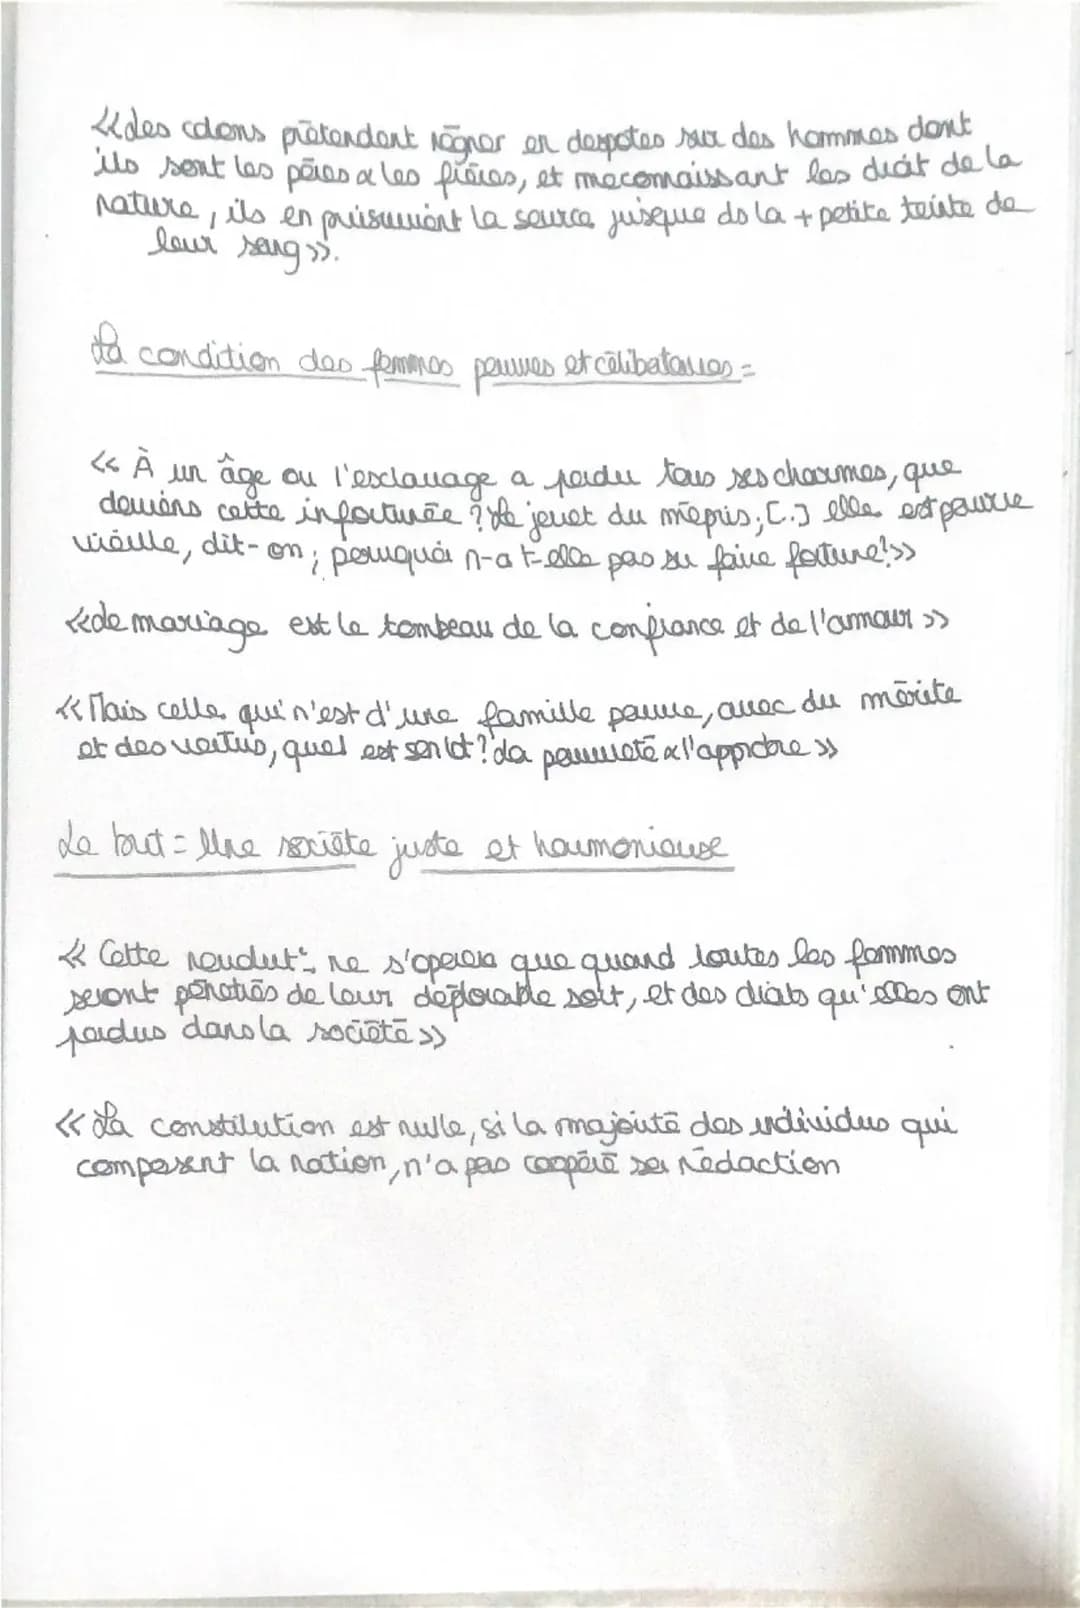 «Les colons prétendent régner en despotes sur des hommes dont
ils sont les pères & les frères, et meconnaissant les droit de la
nature, ils en poursuivent la source jusque ds la + petite teinte de
leur sang».
La condition des femmes pauvres et célibataires =
« À un âge ou l'esclavage a perdu tous ses charmes, que
devient cette infortunée ? Le jouet du mépris, [.] elle est pauvre
vieille, dit-on ; pourquoi n-a t-elle pas su faire fortune!»
«Le mariage est le tombeau de la confiance et de l'amour »
« Mais celle qui n'est d'une famille pauvre, avec du mérite
et des vertus, quel est son lot ? La pauvreté & l'opprobre »
Le but = Une sociéte juste et harmonieuse
« Cette revolut° ne s'opérera que quand toutes les femmes
seront pénétrés de leur déplorable sort, et des droits qu'elles ont
perdus dans la société »
« La constitution est nulle, si la majorité des individus qui
composent la nation, n'a pas coopéré sa rédaction